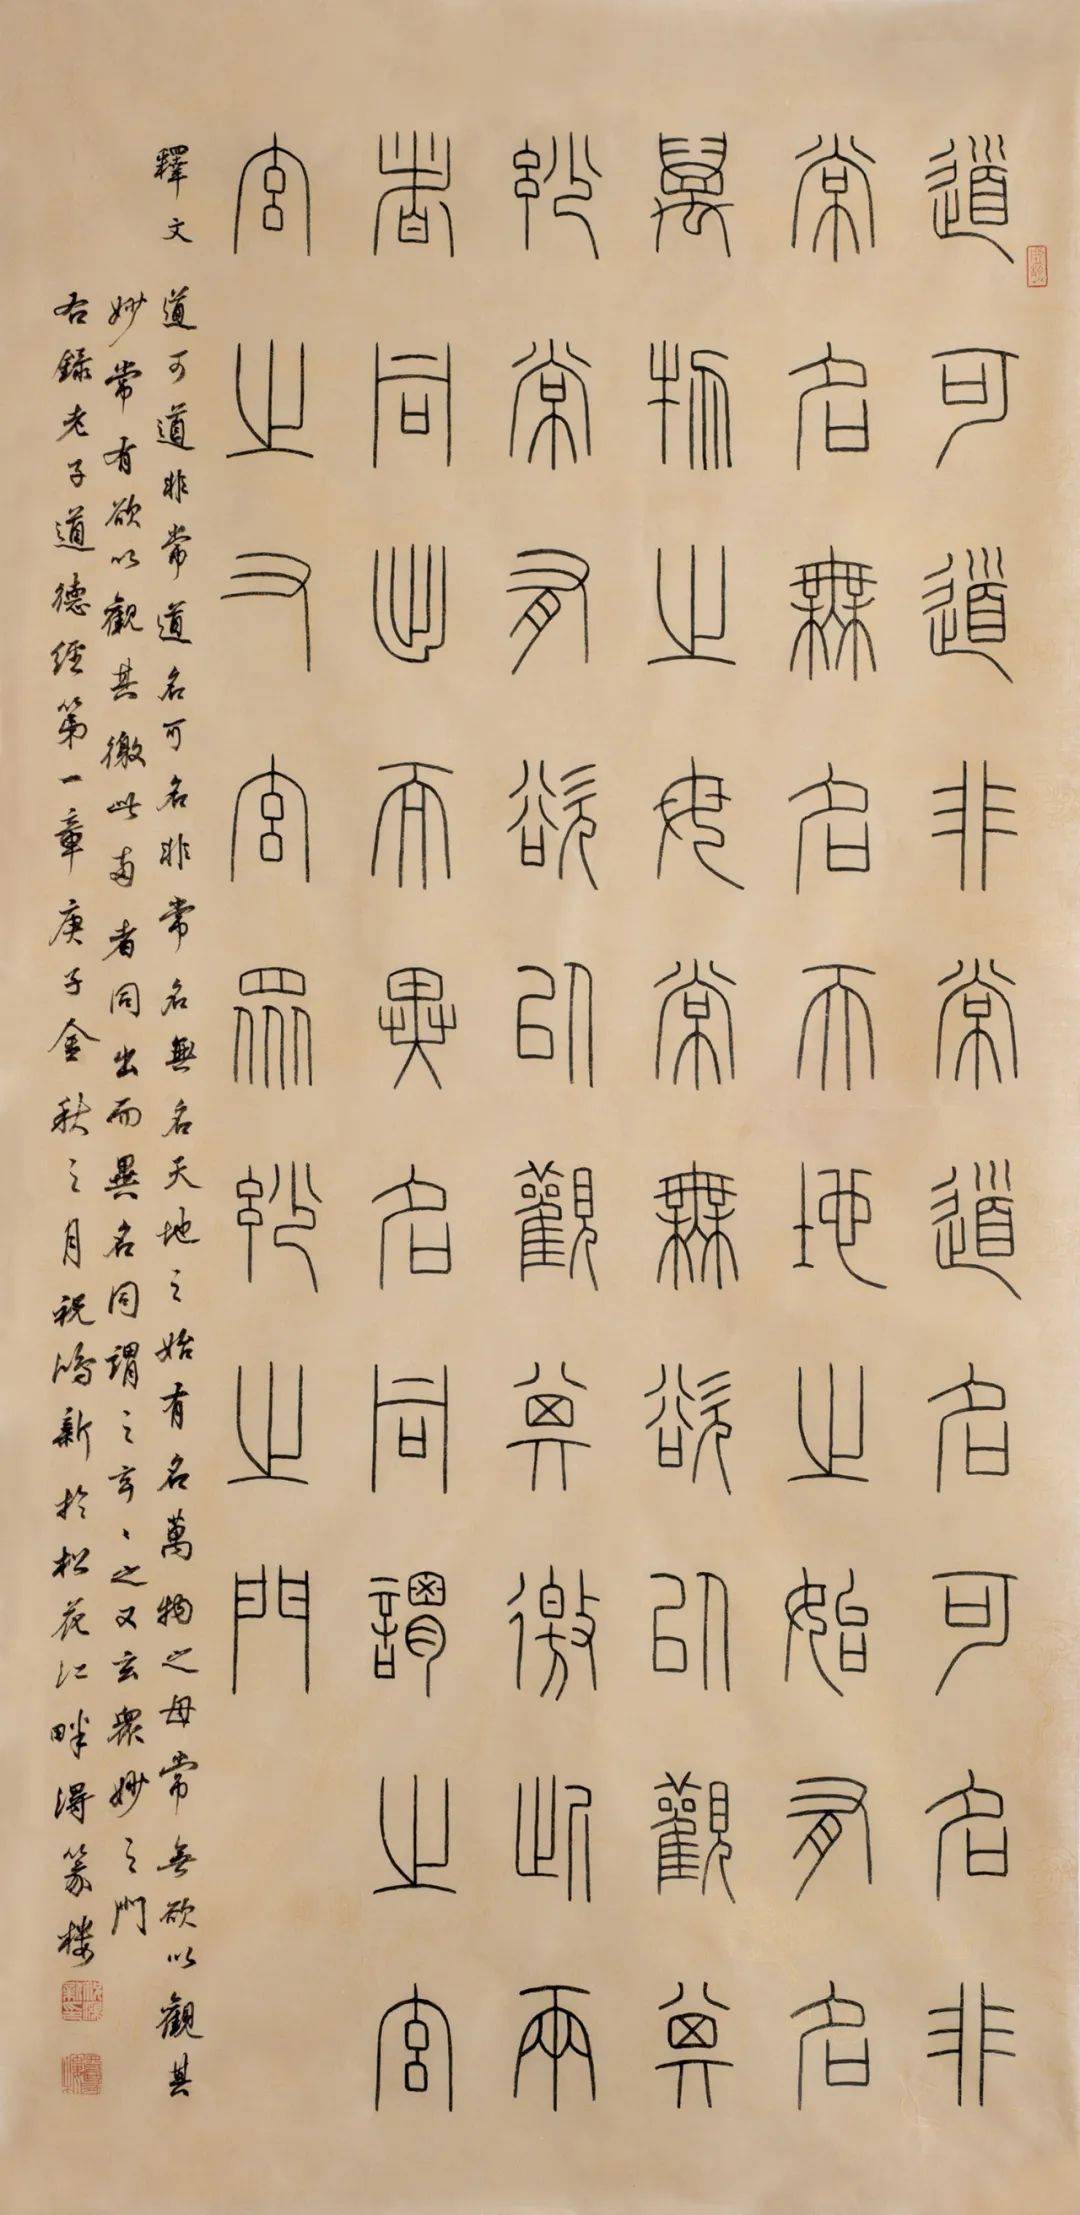 道可道非常道名可名非
常名無名天地之始有名
萬物之母常無欲以觀其
妙常有欲以觀其徼此兩
者同出而異名同謂之玄
玄之又玄眾妙之門
釋文 道可道非常道名可名非常名無名天地之始有名萬物之母常無欲以觀其
妙常有欲以觀其徼此兩者同出而異名同謂之玄〻之又玄眾妙之門
右錄老子道德經第一章庚子金秋之月祝鴻新於松花江畔得篆楼